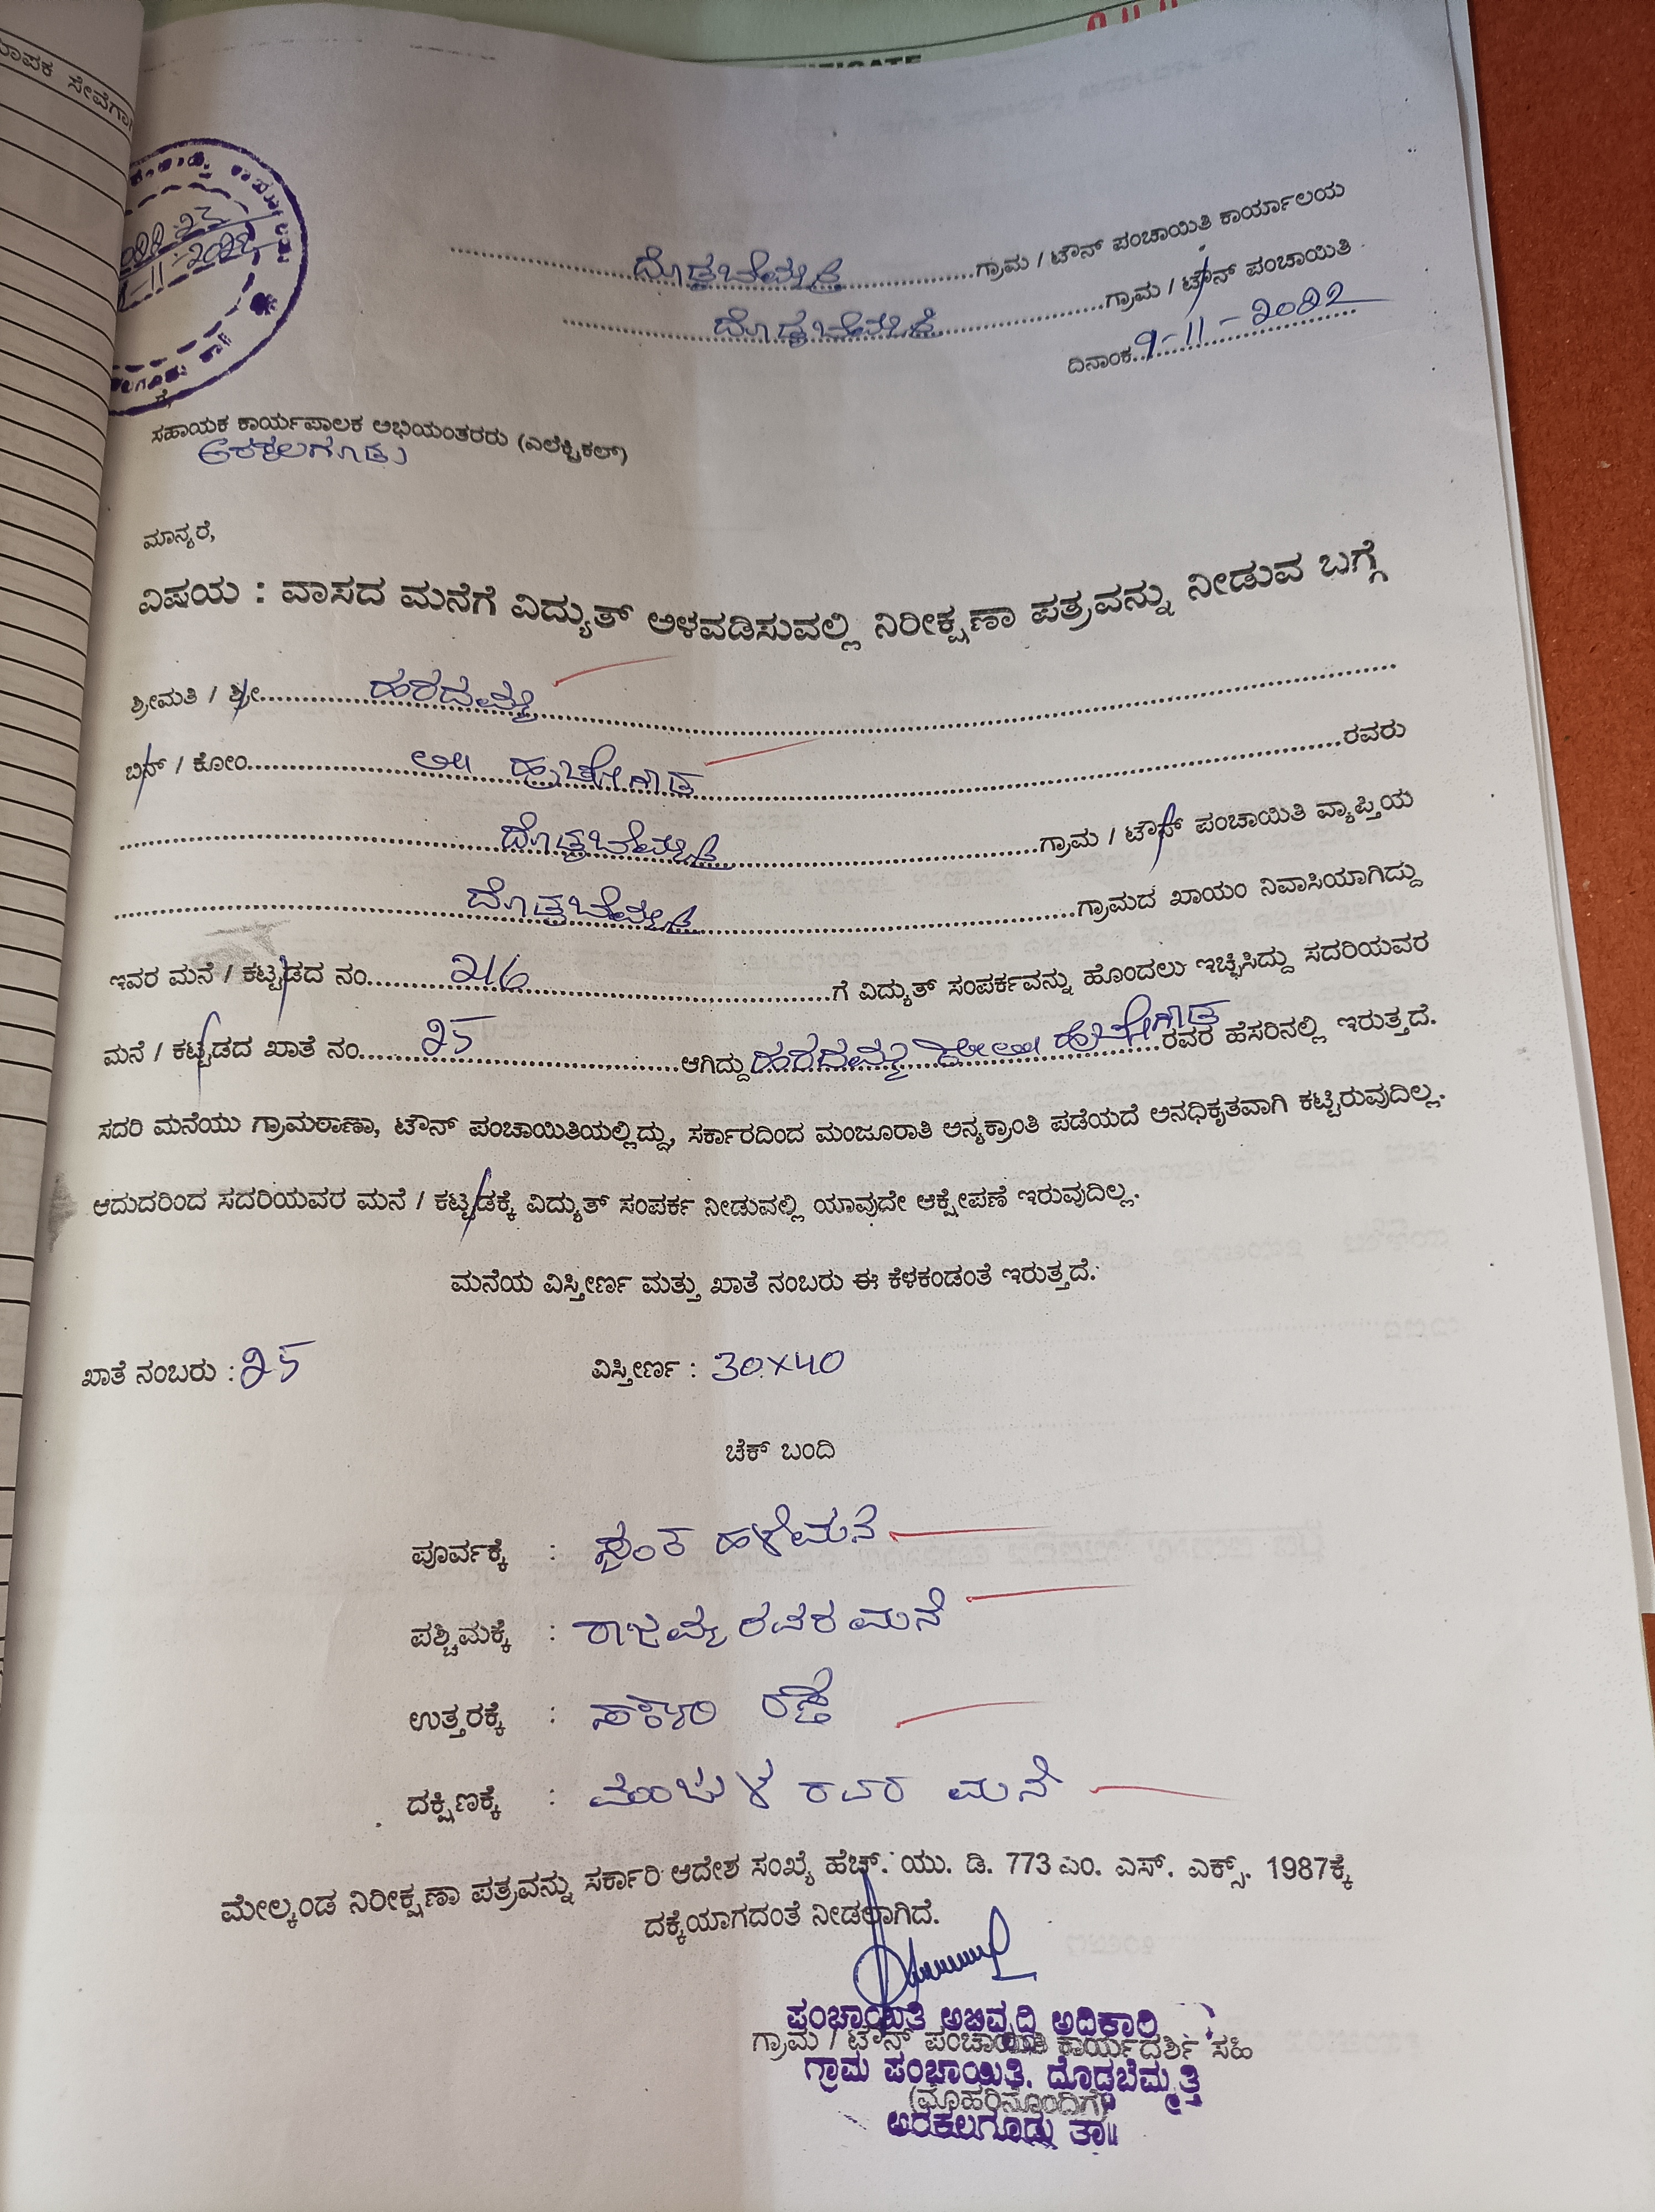 ಮಾಪಕ ಸೇವೆಗಾಗಿ
2022-23
11-2022
ದೊಡ್ಡಬೆಮ್ಮತ್ತಿ ಗ್ರಾಮ / ಟೌನ್ ಪಂಚಾಯಿತಿ ಕಾರ್ಯಾಲಯ
ದೊಡ್ಡಬೆಮ್ಮತ್ತಿ ಗ್ರಾಮ / ಟೌನ್ ಪಂಚಾಯಿತಿ
ದಿನಾಂಕ 9-11-2022
ಗೆ,
ಸಹಾಯಕ ಕಾರ್ಯಪಾಲಕ ಅಭಿಯಂತರರು (ಎಲೆಕ್ಟ್ರಿಕಲ್)
ಅರಕಲಗೂಡು
ಮಾನ್ಯರೆ,
ವಿಷಯ : ವಾಸದ ಮನೆಗೆ ವಿದ್ಯುತ್ ಅಳವಡಿಸುವಲ್ಲಿ ನಿರೀಕ್ಷಣಾ ಪತ್ರವನ್ನು ನೀಡುವ ಬಗ್ಗೆ
ಶ್ರೀಮತಿ / ಶ್ರೀ ಹರದಮ್ಮ
ಬಿನ್ / ಕೋಂ ಲೇ॥ ಹುಚ್ಚೇಗೌಡ ರವರು
ದೊಡ್ಡಬೆಮ್ಮತ್ತಿ ಗ್ರಾಮ / ಟೌನ್ ಪಂಚಾಯಿತಿ ವ್ಯಾಪ್ತಿಯ
ದೊಡ್ಡಬೆಮ್ಮತ್ತಿ ಗ್ರಾಮದ ಖಾಯಂ ನಿವಾಸಿಯಾಗಿದ್ದು
ಇವರ ಮನೆ / ಕಟ್ಟಡದ ನಂ. 216 ಗೆ ವಿದ್ಯುತ್ ಸಂಪರ್ಕವನ್ನು ಹೊಂದಲು ಇಚ್ಛಿಸಿದ್ದು ಸದರಿಯವರ
ಮನೆ / ಕಟ್ಟಡದ ಖಾತೆ ನಂ. 25 ಆಗಿದ್ದು ಹರದಮ್ಮ ಕೋಂ ಲೇ॥ ಹುಚ್ಚೇಗೌಡ ರವರ ಹೆಸರಿನಲ್ಲಿ ಇರುತ್ತದೆ.
ಸದರಿ ಮನೆಯು ಗ್ರಾಮಠಾಣಾ, ಟೌನ್ ಪಂಚಾಯಿತಿಯಲ್ಲಿದ್ದು, ಸರ್ಕಾರದಿಂದ ಮಂಜೂರಾತಿ ಅನ್ಯಕ್ರಾಂತಿ ಪಡೆಯದೆ ಅನಧಿಕೃತವಾಗಿ ಕಟ್ಟಿರುವುದಿಲ್ಲ.
ಆದುದರಿಂದ ಸದರಿಯವರ ಮನೆ / ಕಟ್ಟಡಕ್ಕೆ ವಿದ್ಯುತ್ ಸಂಪರ್ಕ ನೀಡುವಲ್ಲಿ ಯಾವುದೇ ಆಕ್ಷೇಪಣೆ ಇರುವುದಿಲ್ಲ.
ಮನೆಯ ವಿಸ್ತೀರ್ಣ ಮತ್ತು ಖಾತೆ ನಂಬರು ಈ ಕೆಳಕಂಡಂತೆ ಇರುತ್ತದೆ.
ಖಾತೆ ನಂಬರು : 25 ವಿಸ್ತೀರ್ಣ : 30×40
ಚೆಕ್ ಬಂದಿ
ಪೂರ್ವಕ್ಕೆ : ಸ್ವಂತ ಹಳೆಮನೆ
ಪಶ್ಚಿಮಕ್ಕೆ : ರಾಜಮ್ಮ ರವರ ಮನೆ
ಉತ್ತರಕ್ಕೆ : ಸರ್ಕಾರಿ ರಸ್ತೆ
ದಕ್ಷಿಣಕ್ಕೆ : ಮಂಜುಳ ರವರ ಮನೆ
ಮೇಲ್ಕಂಡ ನಿರೀಕ್ಷಣಾ ಪತ್ರವನ್ನು ಸರ್ಕಾರಿ ಆದೇಶ ಸಂಖ್ಯೆ ಹೆಚ್. ಯು. ಡಿ. 773 ಎಂ. ಎಸ್. ಎಕ್ಸ್. 1987ಕ್ಕೆ
ದಕ್ಕೆಯಾಗದಂತೆ ನೀಡಲಾಗಿದೆ.
ಪಂಚಾಯಿತಿ ಅಭಿವೃದ್ಧಿ ಅಧಿಕಾರಿ
ಗ್ರಾಮ / ಟೌನ್ ಪಂಚಾಯಿತಿ ಕಾರ್ಯದರ್ಶಿ ಸಹಿ
ಗ್ರಾಮ ಪಂಚಾಯಿತಿ. ದೊಡ್ಡಬೆಮ್ಮತ್ತಿ
(ಮೊಹರಿನೊಂದಿಗೆ)
ಅರಕಲಗೂಡು ತಾ॥